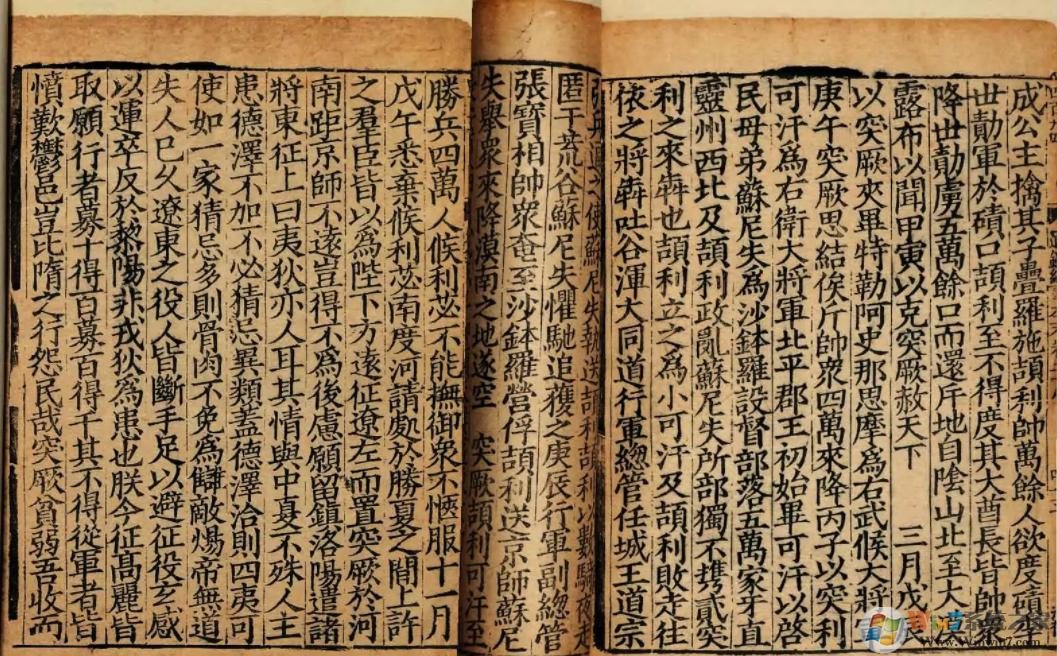 成公主擒其子疊羅施頡利帥萬餘人欲度磧
世勣軍於磧口頡利至不得度其大酋長皆帥衆
降世勣虜五萬餘口而還斥地自陰山北至大
露布以聞甲寅以克突厥赦天下　三月戊辰
以突厥夾畢特勒阿史那思摩爲右武候大將
庚午突厥思結俟斤帥衆四萬來降丙子以突利
可汗爲右衛大將軍北平郡王初始畢可汗以啓
民母弟蘇尼失爲沙鉢羅設督部落五萬家牙直
靈州西北及頡利政亂蘇尼失所部獨不擕貳突
利之來犇也頡利立之爲小可汗及頡利敗走往
依之將犇吐谷渾大同道行軍總管任城王道宗
之使蘇尼失執送頡利頡利以數騎夜走
匿于荒谷蘇尼失懼馳追獲之庚辰行軍副總管
張寶相帥衆奄至沙鉢羅營俘頡利送京師蘇尼
失舉衆來降漠南之地遂空　突厥頡利可汗至
勝兵四萬人候利苾不能撫御衆不愜服十一月
戊午悉棄候利苾南度河請處於勝夏之間上許
之羣臣皆以爲陛下方遠征遼左而置突厥於河
南距京師不遠豈得不爲後慮願留鎮洛陽遣諸
將東征上曰夷狄亦人耳其情與中夏不殊人主
患德澤不加不必猜忌異類蓋德澤洽則四夷可
使如一家猜忌多則骨肉不免爲讎敵煬帝無道
失人已久遼東之役人皆斷手足以避征役玄感
以運卒反於黎陽非戎狄爲患也朕今征高麗皆
取願行者募十得百募百得千其不得從軍者皆
憤歎鬱邑豈比隋之行怨民哉突厥貧弱吾收而